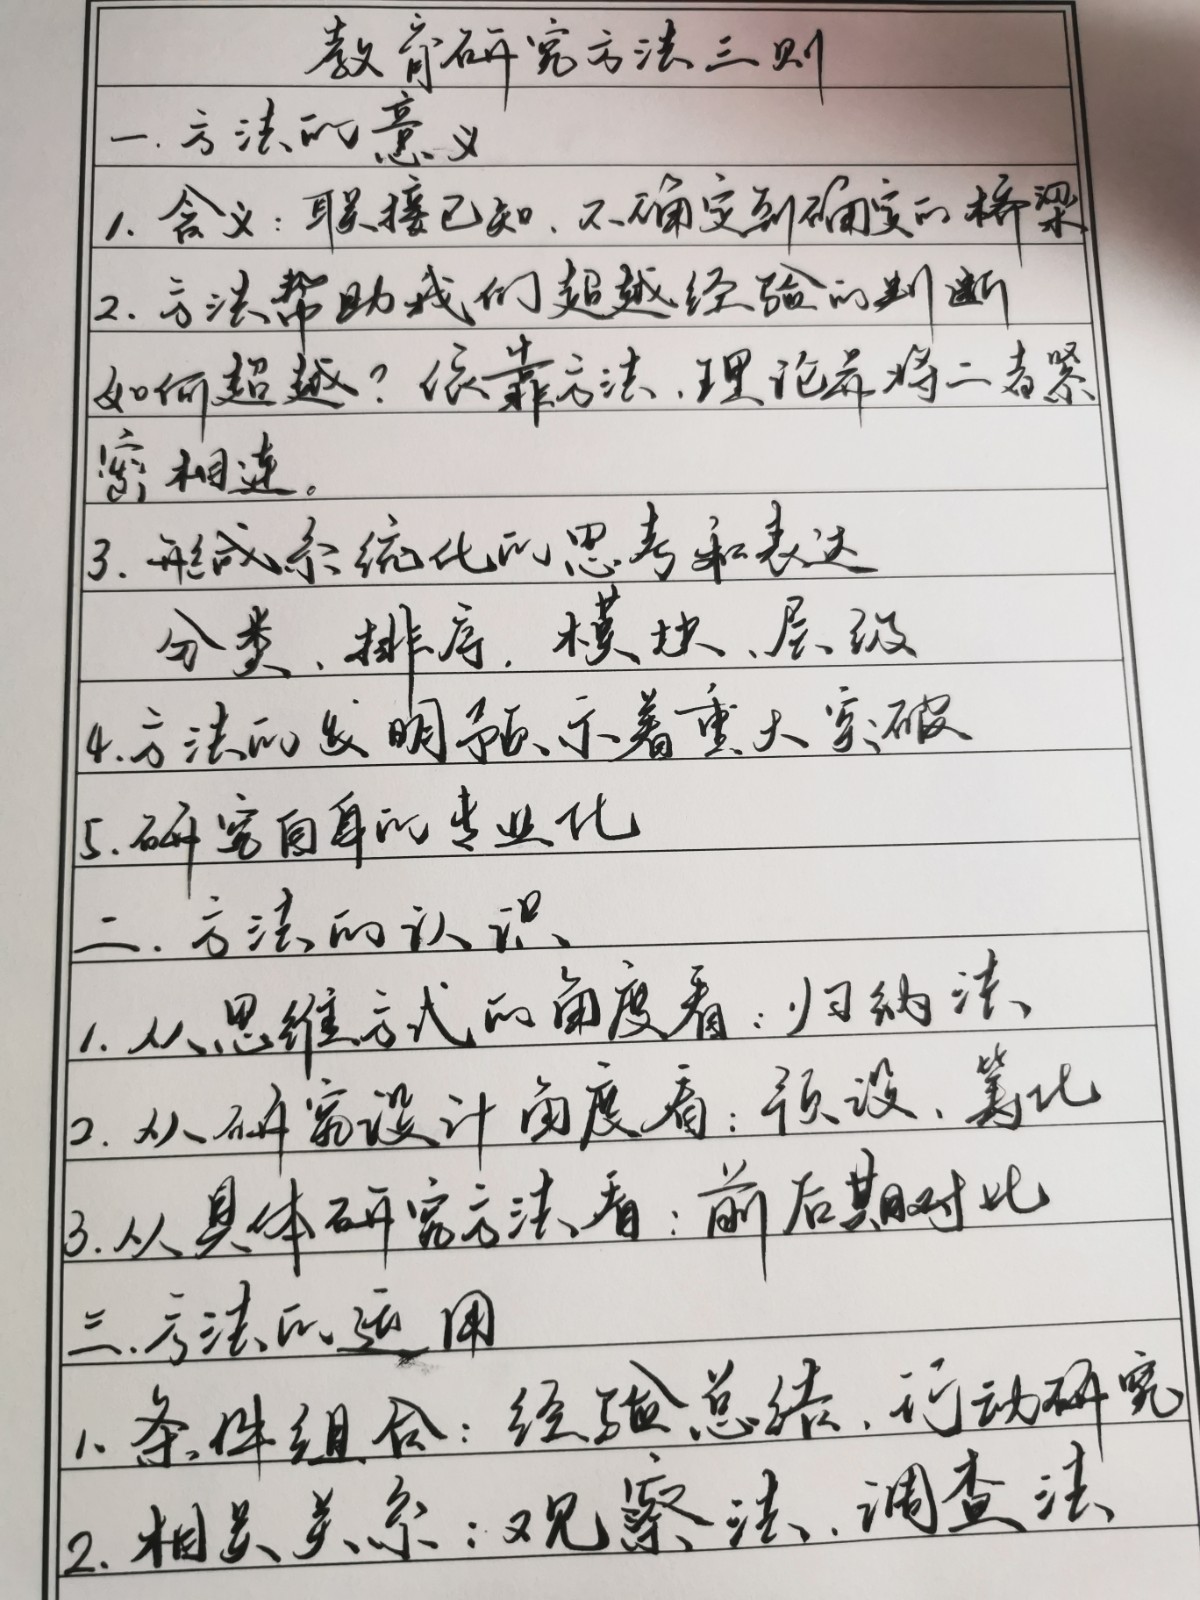 教育研究方法三则
一.方法的意义
1.含义:联接已知、不确定到确定的桥梁
2.方法帮助我们超越经验的判断
如何超越?依靠方法、理论并将二者紧
密相连。
3.形成系统化的思考和表达
分类、排序、模块、层级
4.方法的发明预示着重大突破
5.研究自身的专业化
二.方法的认识
1.从思维方式的角度看:归纳法
2.从研究设计角度看:预设、类比
3.从具体研究方法看:前后期对比
三.方法的运用
1.条件组合:经验总结、行动研究
2.相关关系:观察法、调查法